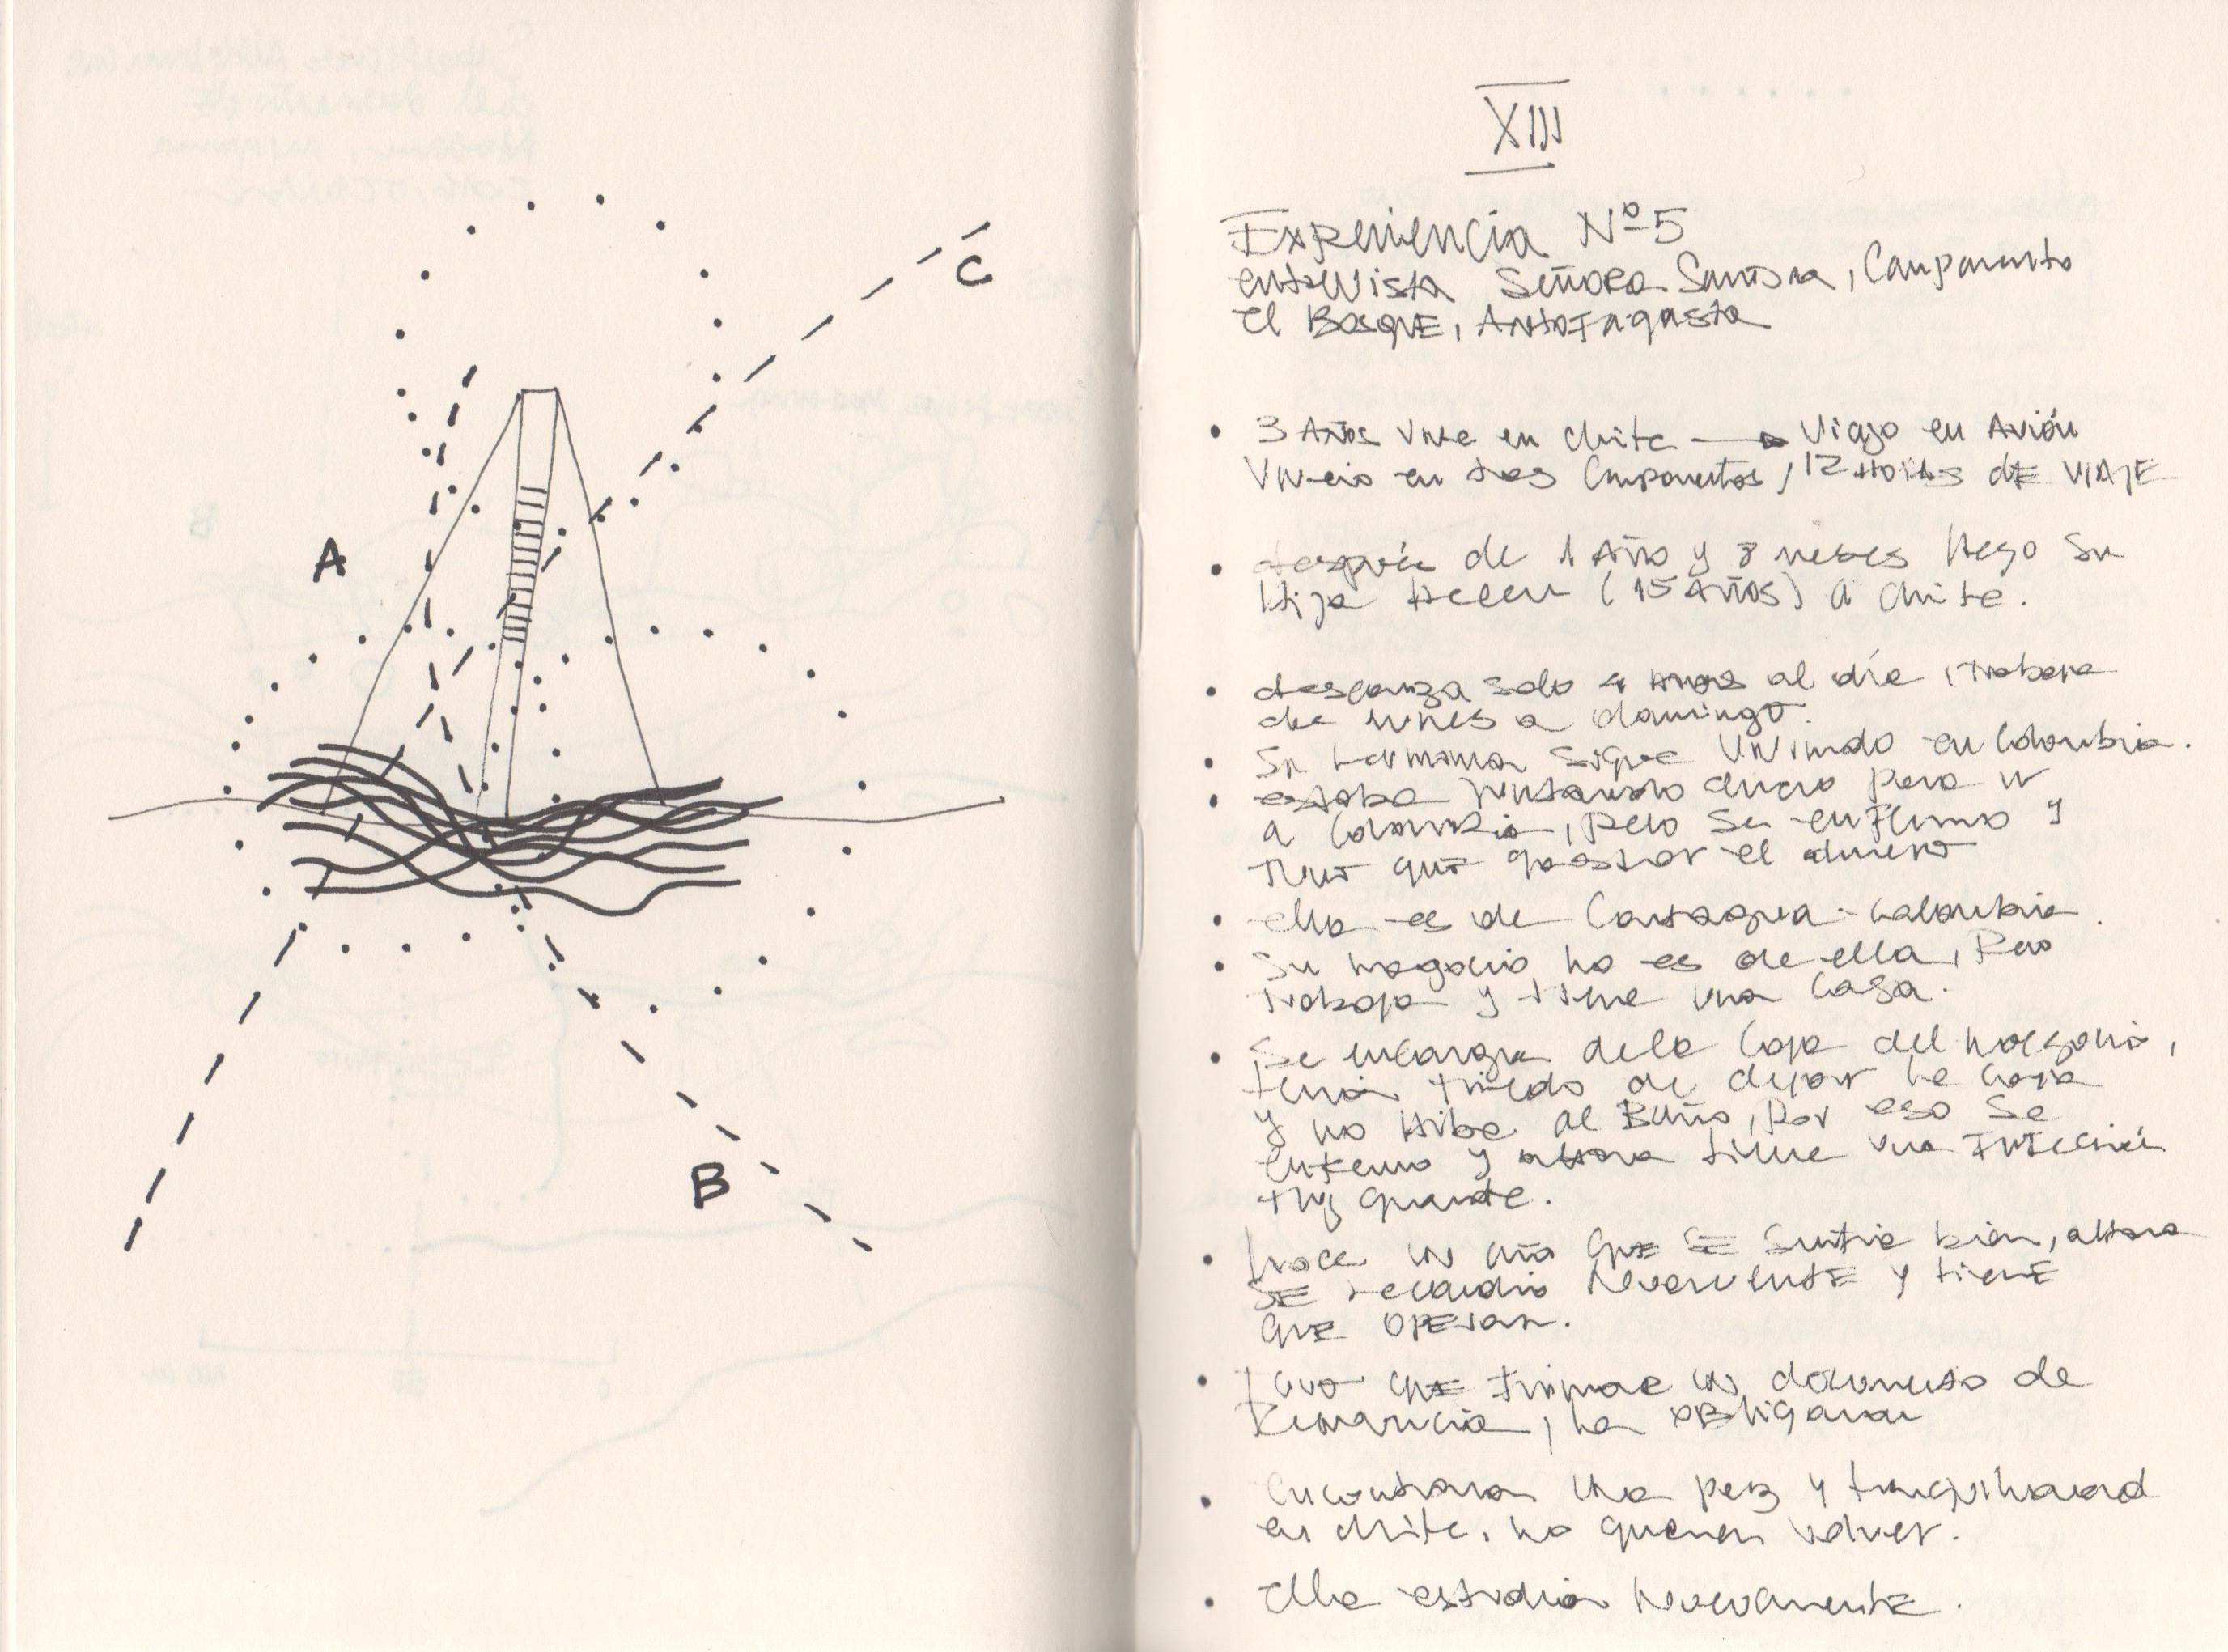 A
B
C
XIII
Experiencia Nº5
entrevista Señora Sandra, Campamento
El Bosque, Antofagasta
• 3 Años vive en Chile → Viajo en Avión
Vivio en tres Campamentos, 12 Horas de VIAJE
• después de 1 Año y 8 meses llego su
Hija Helen (15 AÑOS) a Chile.
• descanza solo 4 horas al día, trabaja
de lunes a domingo.
• Su hermana sigue viviendo en Colombia.
• estaba juntando dinero para ir
a Colombia, pero se enfermo y
tuvo que gastar el dinero
• ella es de Cartagena - Colombia.
• Su negocio no es de ella, Pero
trabaja y tiene una casa.
• Se encarga de la Caja del negocio,
tenia miedo de dejar la caja
y no iba al Baño, por eso se
enfermo y ahora tiene una Infección
muy grande.
• hace un año que se sentia bien, ahora
SE recayo Nuevamente y tiene
que operar.
• tuvo que firmar un documento de
Renuncia, la obligaron
• encontraron una paz y tranquilidad
en Chile, no quieren volver.
• Ella estudia Nuevamente.